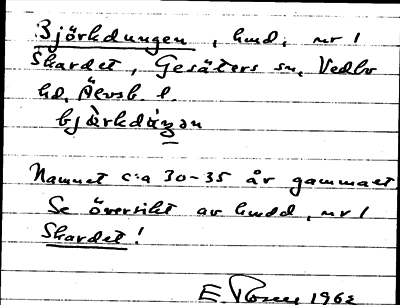 Björkdungen, hmd, nr 1
Skardet, Gesäters sn, Vedbo
hd, Älvsb. l.
bjà̀rkdáŋən
Namnet c:a 30-35 år gammalt
Se översikt av hmdd, nr 1
Skardet!
E. 1962